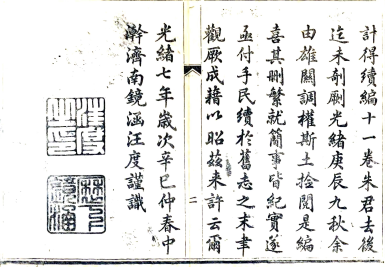 計得續編十一卷朱君去後
迄未剞劂光緒庚辰九秋余
由雄關調權斯土捡閱是編
喜其刪繁就簡事皆紀實遂
亟付手民續於舊志之末聿
觀厥成藉以昭茲来許云爾
光緒七年歲次辛巳仲春中
澣濟南鏡涵汪度謹識
二
汪度
之印